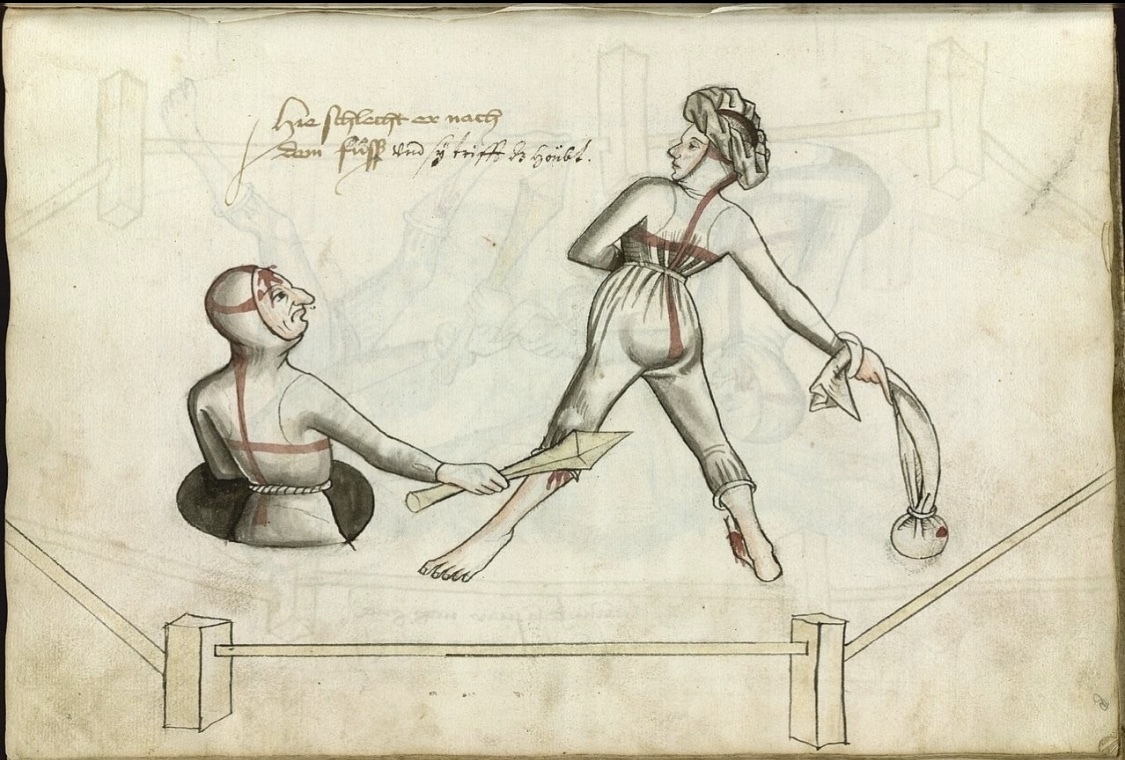 Hie schlecht er nach
dem fůſſ vnd ſy trifft dz hoͮbt.